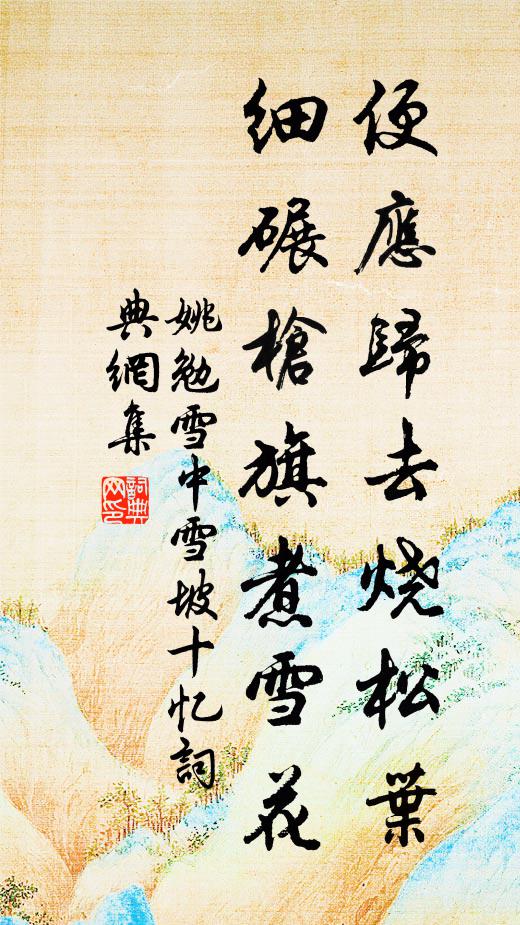 便應歸去烧松葉
細碾槍旗煮雪花
姚勉雪中雪坡十忆詞
典網集
詞典网印